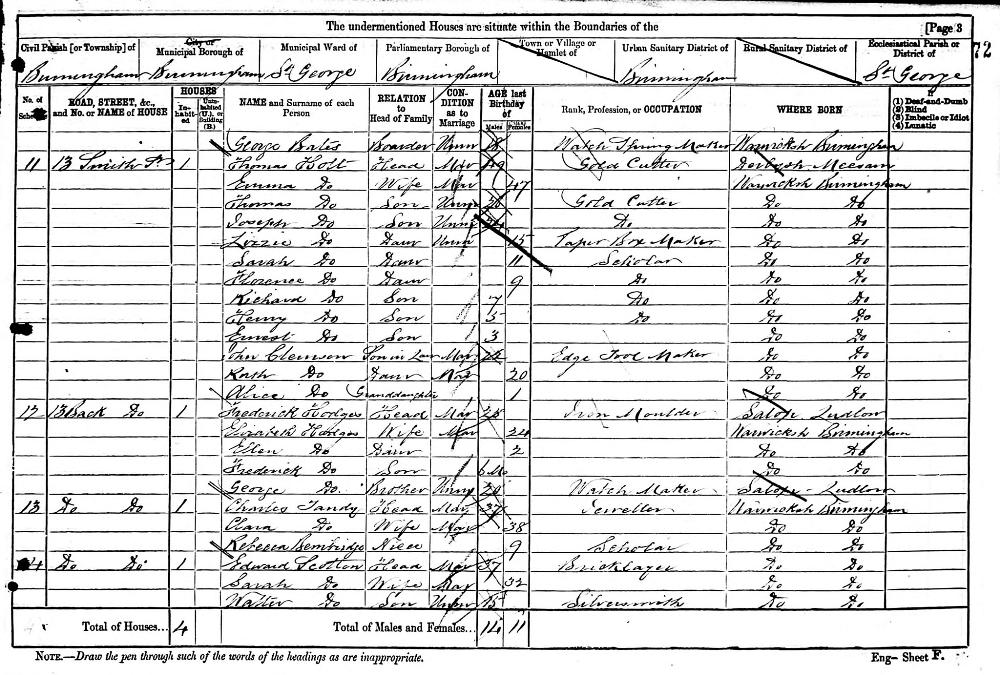 The undermentioned Houses are situate within the Boundaries of the [Page 3
72
Civil Parish [or Township] of City or Municipal Borough of Municipal Ward of Parliamentary Borough of Town or Village or Hamlet of Urban Sanitary District of Rural Sanitary District of Ecclesiastical Parish or District of
Birmingham Birmingham St George Birmingham Birmingham St George
No. of Schedule ROAD, STREET, &c., and No. or NAME of HOUSE HOUSES Inhabited Uninhabited (U.), or Building (B.) NAME and Surname of each Person RELATION to Head of Family CONDITION as to Marriage AGE last Birthday of Males Females Rank, Profession, or OCCUPATION WHERE BORN If (1) Deaf-and-Dumb (2) Blind (3) Imbecile or Idiot (4) Lunatic
George Bates Boarder Unm 18 Watch Spring Maker Warwicksh Birmingham
11 13 Smith St 1 Thomas Holt Head Mar 49 Gold Cutter Derbysh Meesam
Emma Do Wife Mar 47 Warwicksh Birmingham
Thomas Do Son Unm Gold Cutter Do Do
Joseph Do Son Unm Do Do Do
Lizzie Do Daur Unm 15 Paper Box Maker Do Do
Sarah Do Daur 11 Scholar Do Do
Florence Do Daur 9 Do Do Do
Richard Do Son 7 Do Do Do
Henry Do Son 5 Do Do Do
Ernest Do Son 3 Do Do
John Clemson Son in Law Mar Edge Tool Maker Do Do
Do Daur Mar 20 Do Do
Alice Do Granddaughter 1 Do Do
12 13 Back Do 1 Frederick Hodges Head Mar 25 Iron Moulder Salop Ludlow
Elizabeth Hodges Wife Mar 24 Warwicksh Birmingham
Ellen Do Daur 2 Do Do
Frederick Do Son 6 Mo Do Do
George Do Brother Unm 20 Watch Maker Salop Ludlow
13 Do Do 1 Charles Tandy Head Mar 37 Jeweller Warwicksh Birmingham
Clara Do Wife Mar 38 Do Do
Rebecca Bembridge Niece 9 Scholar Do Do
14 Do Do 1 Edward Scotton Head Mar 37 Bricklayer Do Do
Sarah Do Wife Mar 32 Do Do
Walter Do Son Unm 15 Silversmith Do Do
Total of Houses... 4 Total of Males and Females... 14 11
NOTE.—Draw the pen through such of the words of the headings as are inappropriate. Eng- Sheet F.